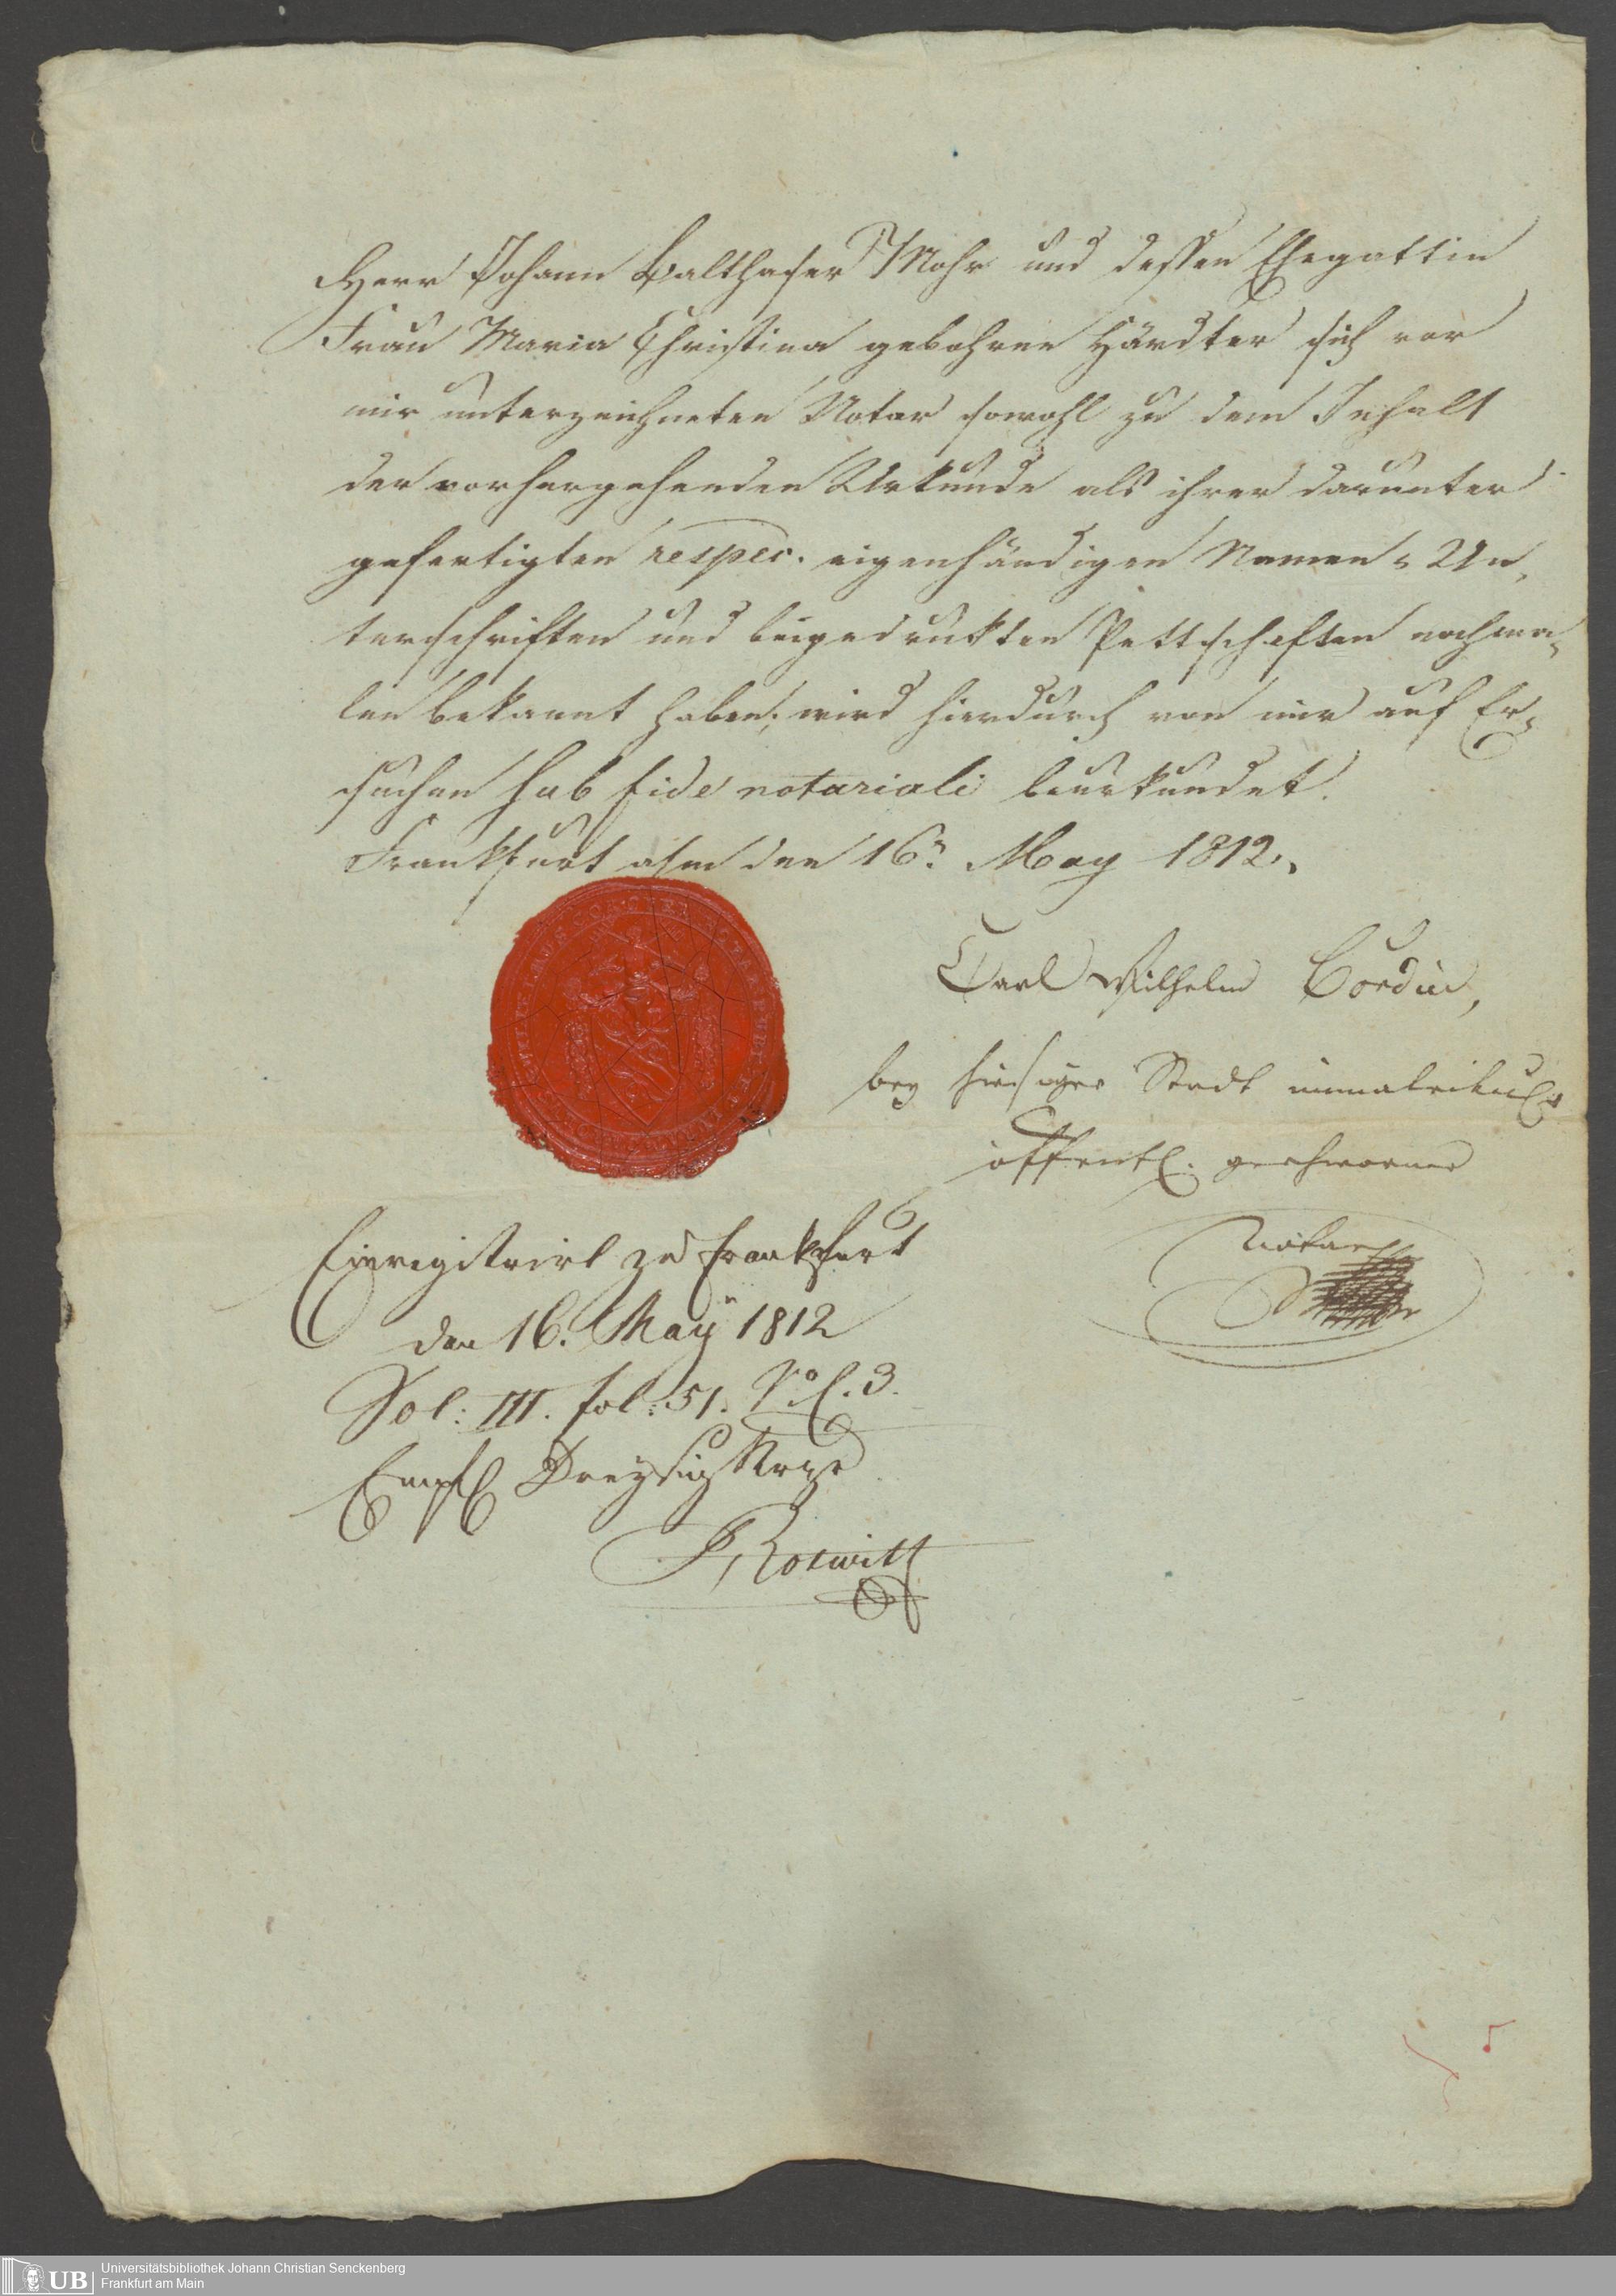 Herr Johann Balthaser Mohr und dessen Ehegattin
Frau Maria Christina gebohrne Härdter sich vor
mir unterzeichneten Notar sowohl zu dem Inhalt
der vorhergehenden Urkunde als ihrer darunter
gefertigten respec. eigenhändigen Namen=Un,
terschriften und beigedruckten Pettschaften nochma¬
len bekannt haben, wird hierdurch von mir auf Er¬
suchen sub fide notariali beurkundet.
Frankfurt a/m den 16n May 1812.
Carl Wilhelm
bey hiesiger Stadt immatriculr
öffentl. geschworner
Notar
Einregistrirt zu Frankfurt
den 16. May 1812
Vol: III. fol: 51. No 3.
Empf Dreysig Krzr
Universitätsbibliothek Johann Christian Senckenberg
Frankfurt am Main
UB